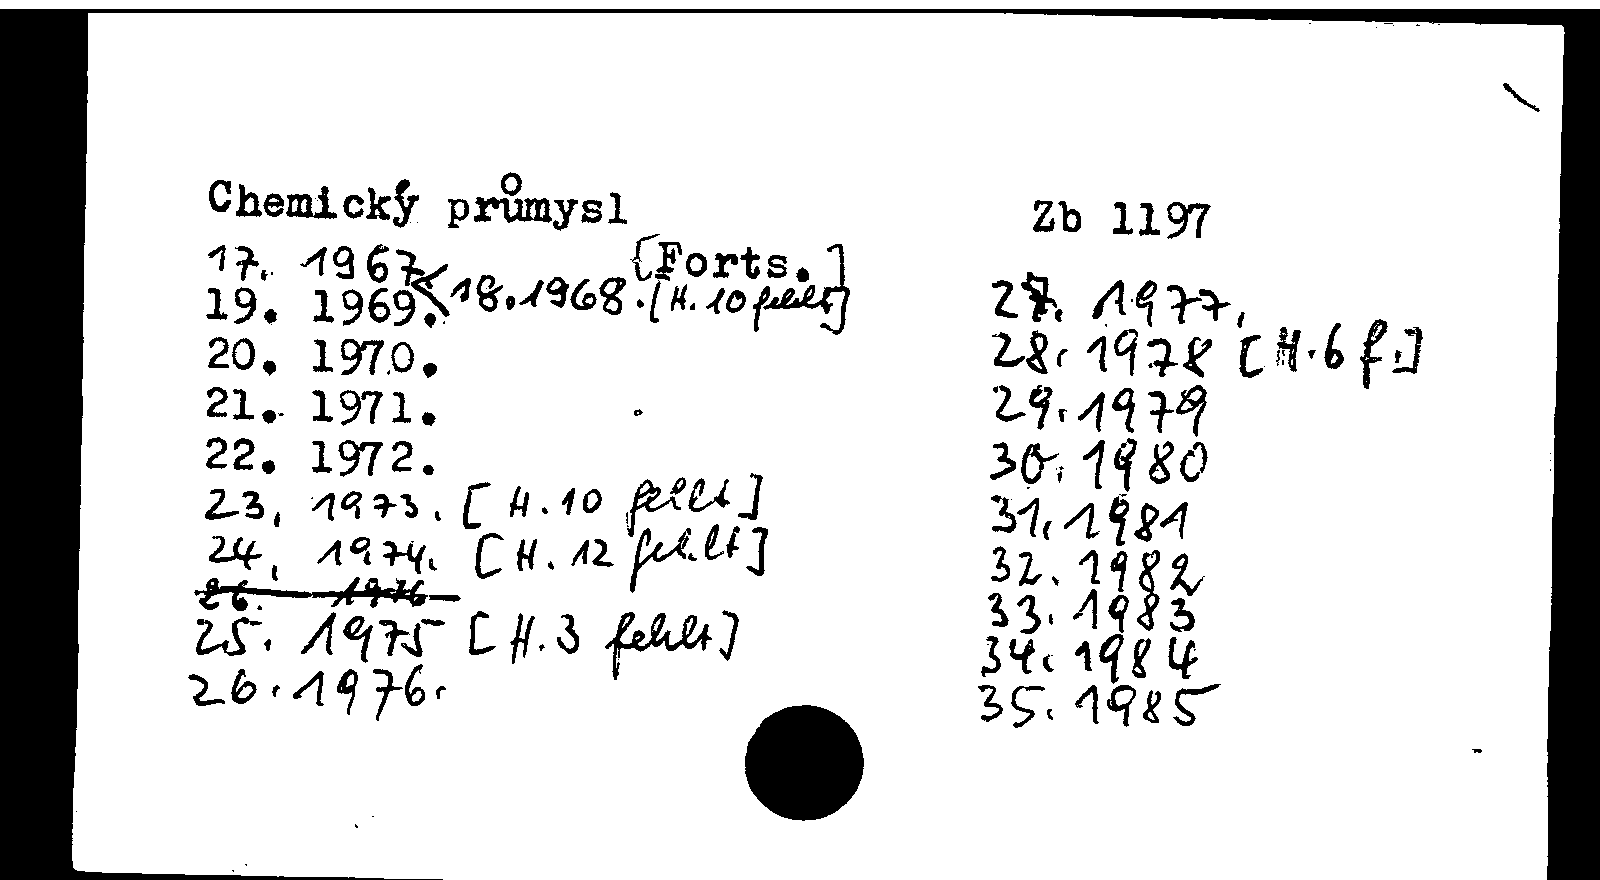 Chemický průmysl
Zb 1197
[Forts.]
17. 1967
18. 1968. [H. 10 fehlt]
19. 1969.
20. 1970.
21. 1971.
22. 1972.
23. 1973. [H. 10 fehlt]
24. 1974. [H. 12 fehlt]
26. 1976
25. 1975 [H. 3 fehlt]
26. 1976.
27. 1977.
28. 1978 [H. 6 f.]
29. 1979
30. 1980
31. 1981
32. 1982
33. 1983
34. 1984
35. 1985